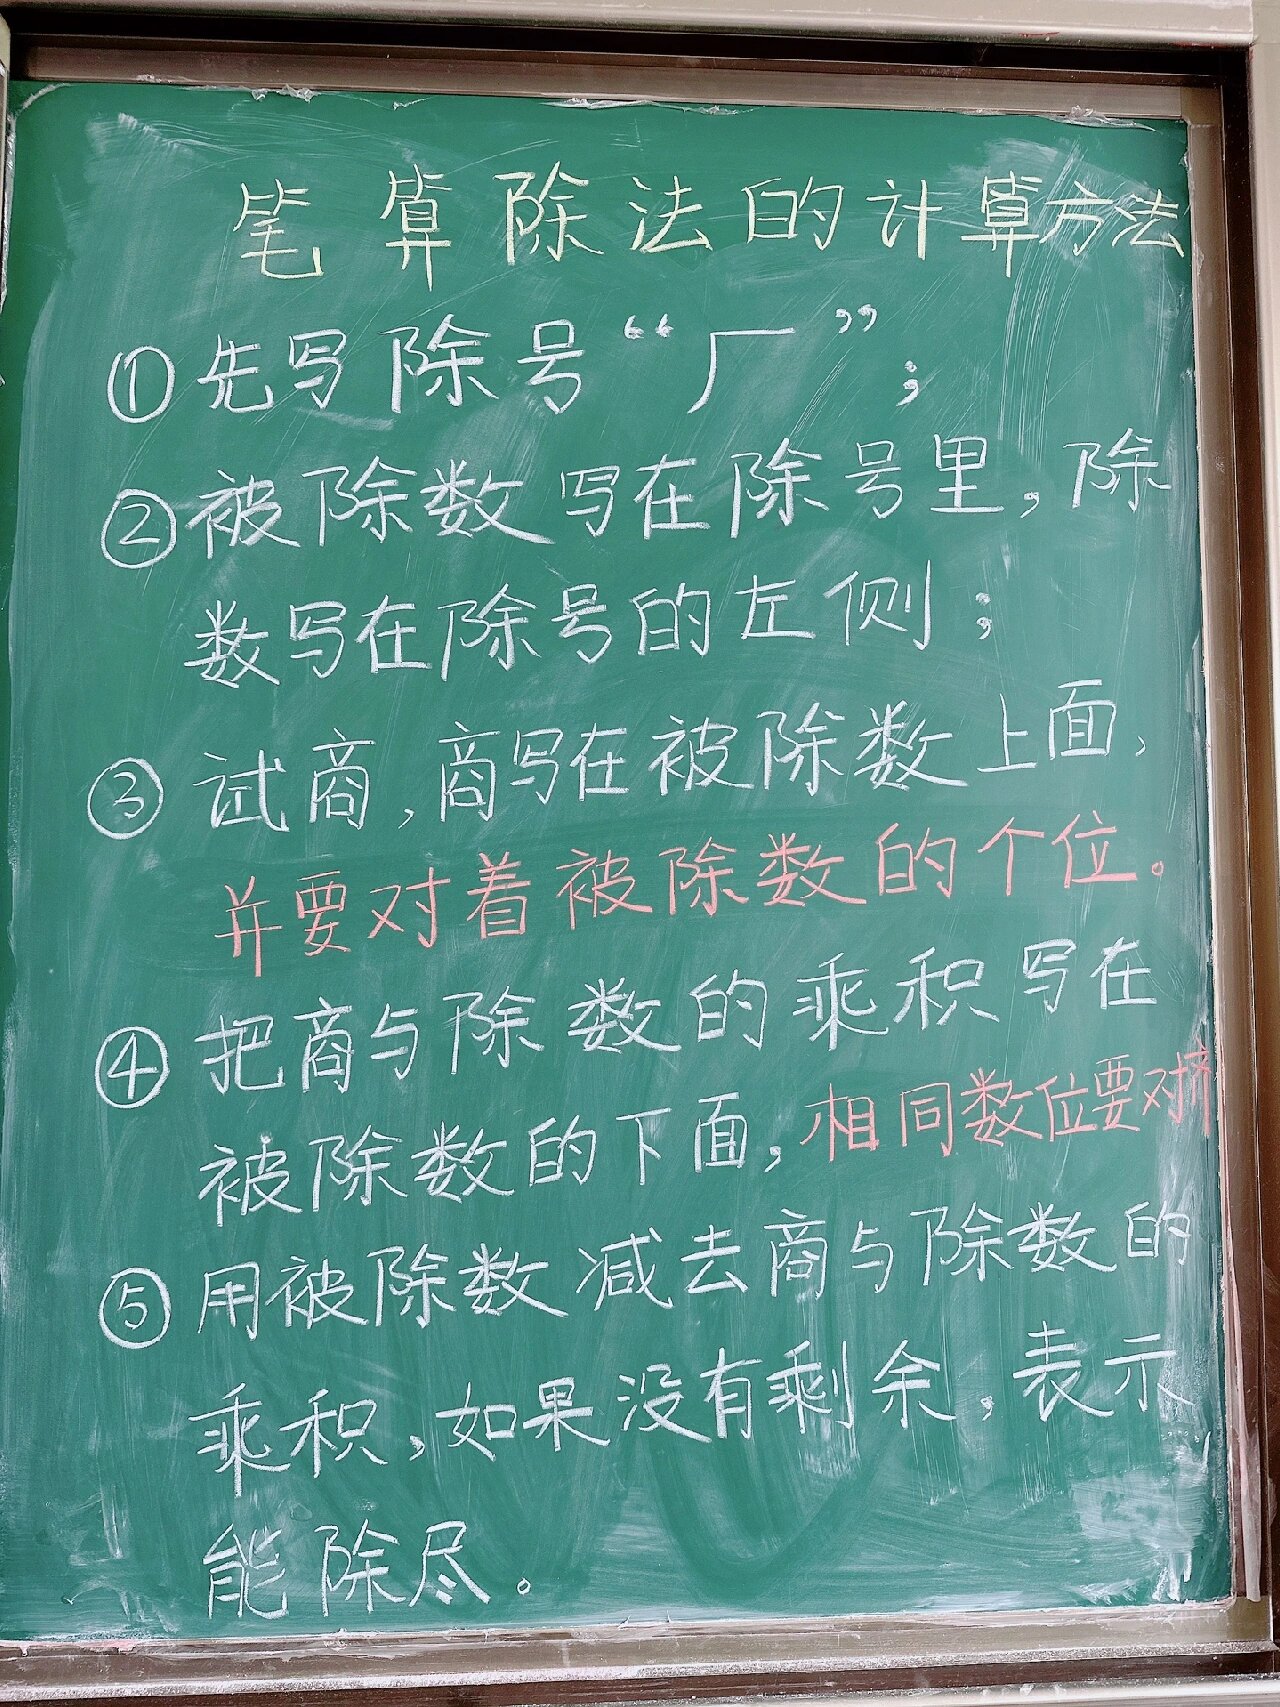 笔算除法的计算方法
①先写除号“厂”；
②被除数写在除号里，除
数写在除号的左侧；
③试商，商写在被除数上面，
并要对着被除数的个位。
④把商与除数的乘积写在
被除数的下面，相同数位要对齐
⑤用被除数减去商与除数的
乘积，如果没有剩余，表示
能除尽。